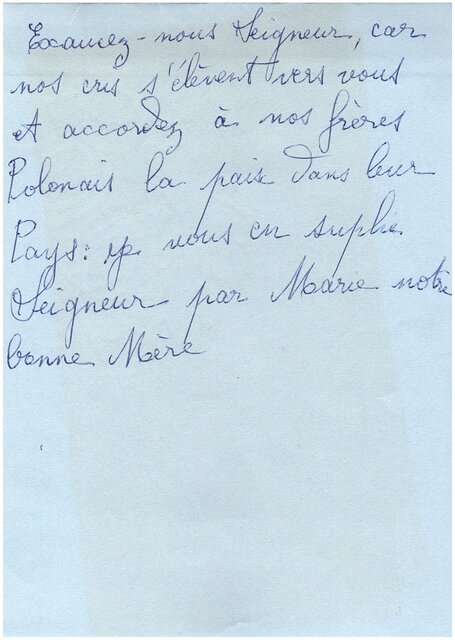 Exaucez-nous Seigneur, car
nos cris s'élèvent vers vous
et accordez à nos frères
Polonais la paix dans leur
Pays: je vous en suplie
Seigneur par Marie notre
bonne Mère